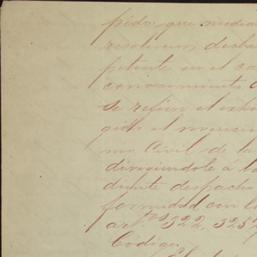 pido, que media
resolucion, decla
petente en el co
conocimiento d
se refiere el exho
gido el mencion
mo Civil de la
dirigiendole á la
diente despacho
formidad con lo
art.ᵒˢ 322, 323
Codigo